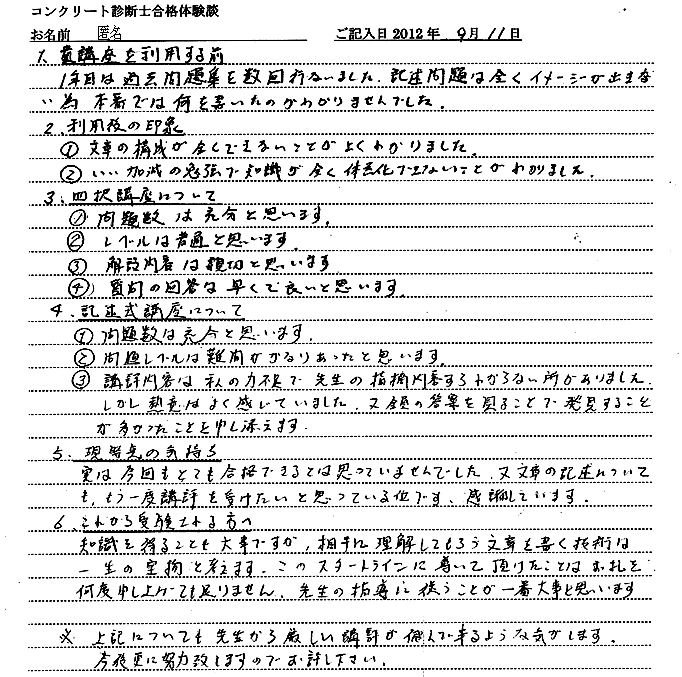 コンクリート診断士合格体験談
お名前 匿名 ご記入日 2012年 9月 11日
1. 貴講座を利用する前
1年目は過去問題集を数回行ないました。記述問題は全くイメージが出来な
い為 本番では何を書いたのかわかりませんでした。
2. 利用後の印象
① 文章の構成が全くできないことがよくわかりました。
② いい加減の勉強で知識が全く体系化できないことがわかりました。
3. 四択講座について
① 問題数は充分と思います。
② レベルは普通と思います。
③ 解説内容は親切と思います
④ 質問の回答は早くて良いと思います。
4. 記述式講座について
① 問題数は充分と思います。
② 問題レベルは難問がかなりあったと思います。
③ 講評内容は私の力不足で先生の指摘内容すらわからない所がありました
しかし熱意はよく感じていました。又 の答案を見ることで発見すること
が多かったことを申し添えます。
5. 現時点の気持ち
実は今回もとても合格できるとは思っていませんでした。又文章の記述について
も、もう一度講評を受けたいと思っている位です、感謝しています。
6. これから受験される方へ
知識を得ることも大事ですが、相手に理解してもらう文章を書く技術は
一生の宝物と考えます。このスタートラインに導いて頂けたことはお礼を
何度申し上げても足りません。先生の指導に従うことが一番大事と思います
※ 上記についても先生から厳しい講評が飛んで来るような気がします。
今後更に努力致しますのでお許し下さい。